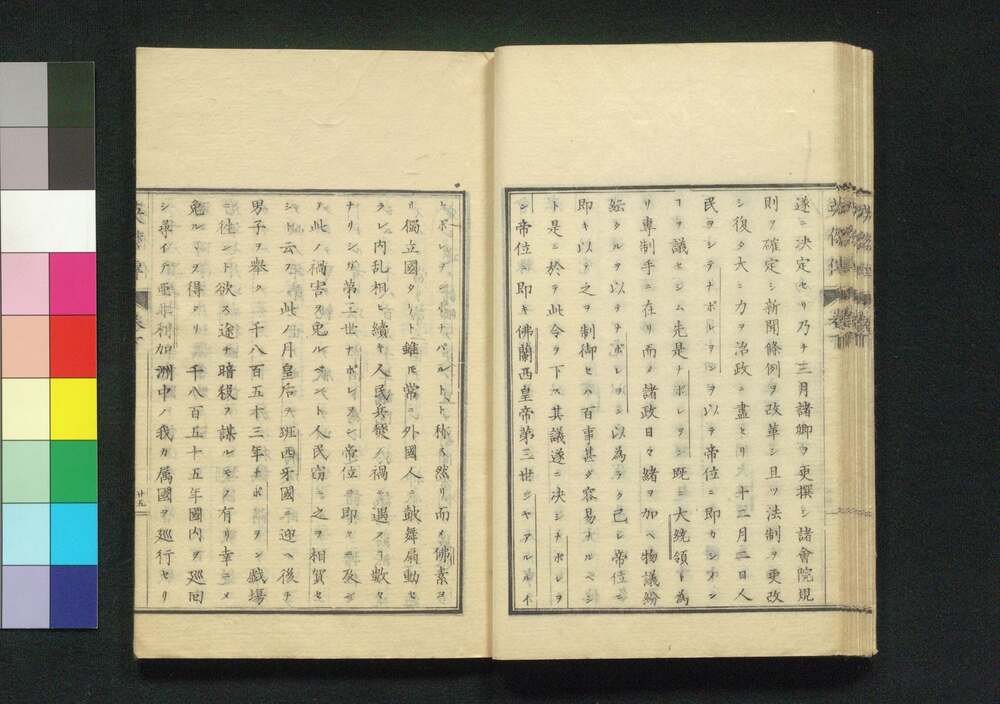 遂ニ決定セリ乃チ三月諸卿ヲ更撰シ諸會院規
則ヲ確定シ新聞條例ヲ改革シ且ツ法制ヲ更改
シ復タ大ニ力ヲ治政ニ盡セリ 十二月二日人
民ヲシテナポレヲンヲ以テ帝位ニ即カシメン
ヿヲ議セシム先是ナポレヲン既ニ大統領ト為
リ専制手ニ在リ而メ諸政日々緒ヲ加ヘ物議紛
紜タルヲ以テナポレヲン以為ラク己レ帝位ニ
即キ以テ之ヲ制御セハ百事甚タ容易ナルベシ
ト是ニ於テ此令ヲ下ス其議遂ニ决シナポレヲ
ン帝位ニ即キ佛蘭西皇帝第三世シヤアルルイ
トナポレヲン ト称ス然リ而メ佛素ヨ
リ獨立國タリト雖𪜈常ニ外國人ノ皷舞扇動セ
ラレ内乱相ヒ續キ人民兵燹ノ禍ニ遇フヿ數々
ナリシガ第三世ナポレヲン帝位ニ即クニ及ン
テ此ノ禍害ヲ免ルベシト人民窃ニ之ヲ相賀セ
シト云フ 此ノ月皇后ヲ班西牙國ニ迎ヘ後チ
男子ヲ舉ク 千八百五十三年ナポレヲン戯塲
ニ徃ント欲ス途ヲ暗殺ヲ謀ルモノ有リ幸ニメ
免ルヽヲ得タリ 千八百五十五年國内ヲ巡回
シ 加洲中ノ我カ属國ヲ巡行セリ
廿五